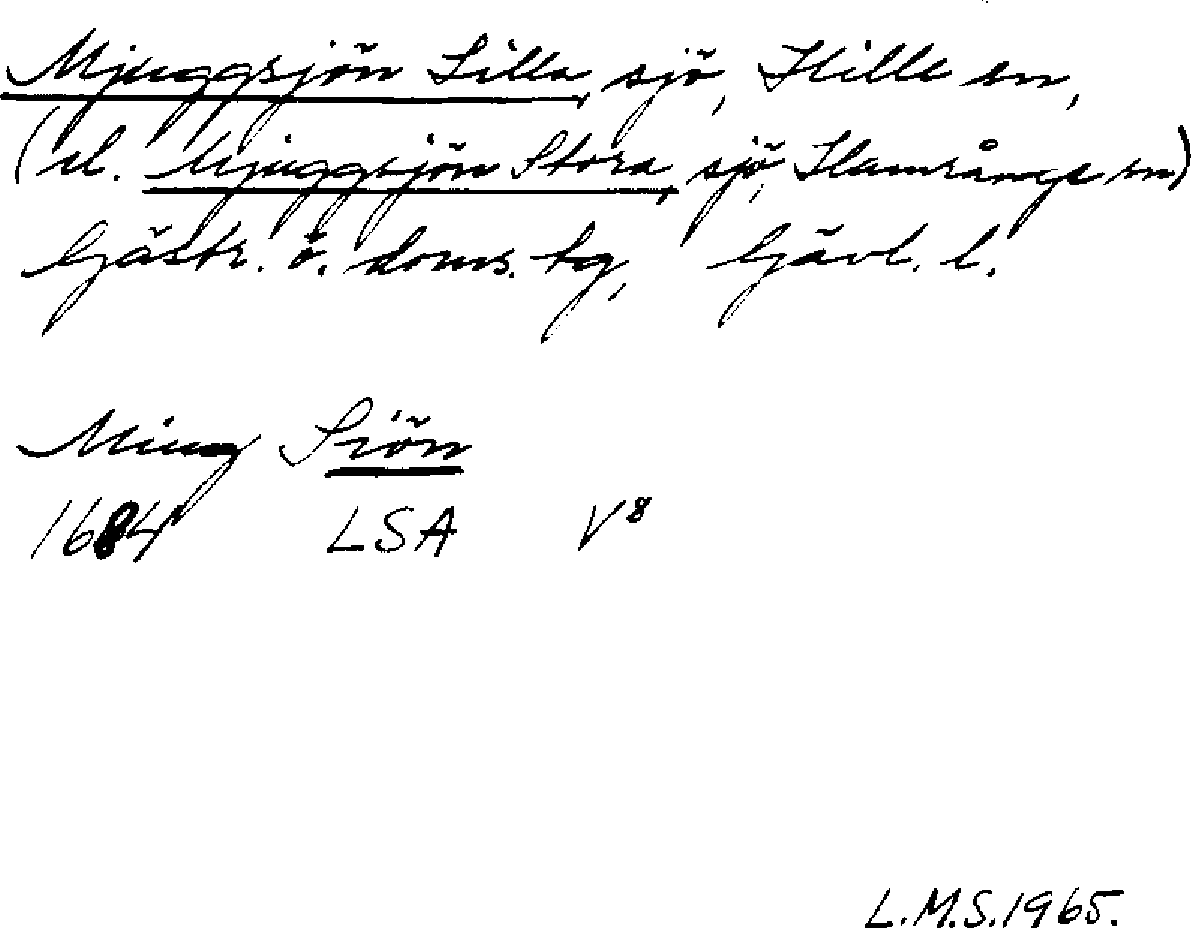 Mjuggsjön Lilla, sjö, Hille sn,
(el. Mjuggsjön Stora, sjö, Hamrånge sn)
Gästr. ö. doms. tg, Gävl. l.
Miug Siön
1684 LSA V8
L.M.S. 1965.